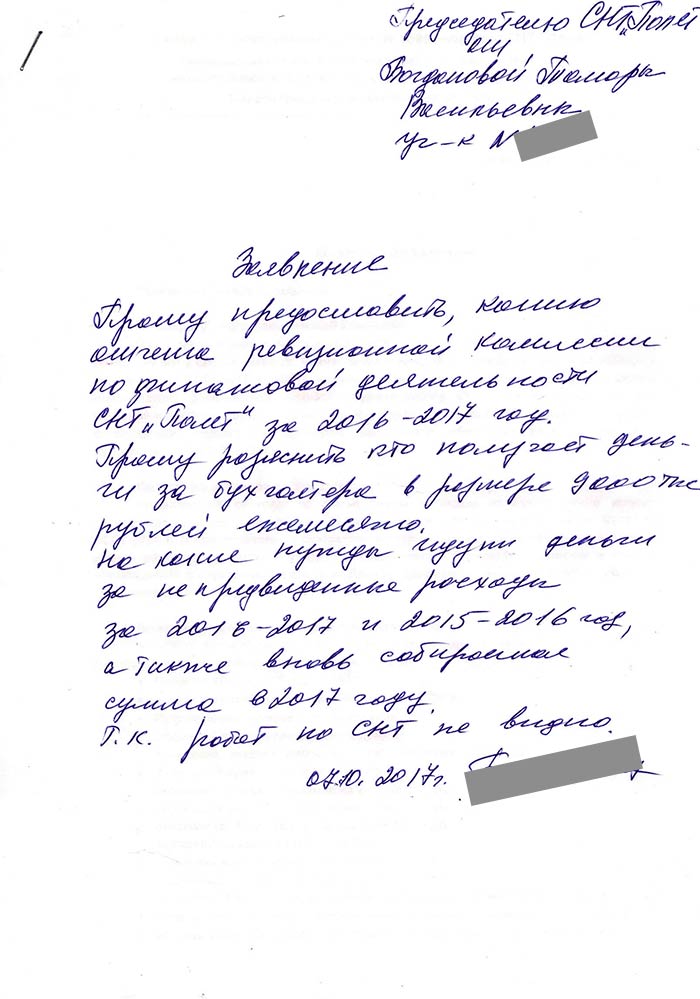 Председателю СНТ „Полет"
от
Богдановой Тамары
Васильевны
уч-к №
Заявление
Прошу предоставить, копию
отчета ревизионной комиссии
по финансовой деятельности
СНТ „Полет" за 2016-2017 год.
Прошу разяснить кто получает день-
ги за бухгалтера в размере 9000 тыс
рублей ежемесячно.
На какие нужды идут деньги
за непредвиденные расходы
за 2016-2017 и 2015-2016 год,
а также вновь собираемая
сумма в 2017 году.
Т.к. работ по СНТ не видно.
07.10. 2017г.